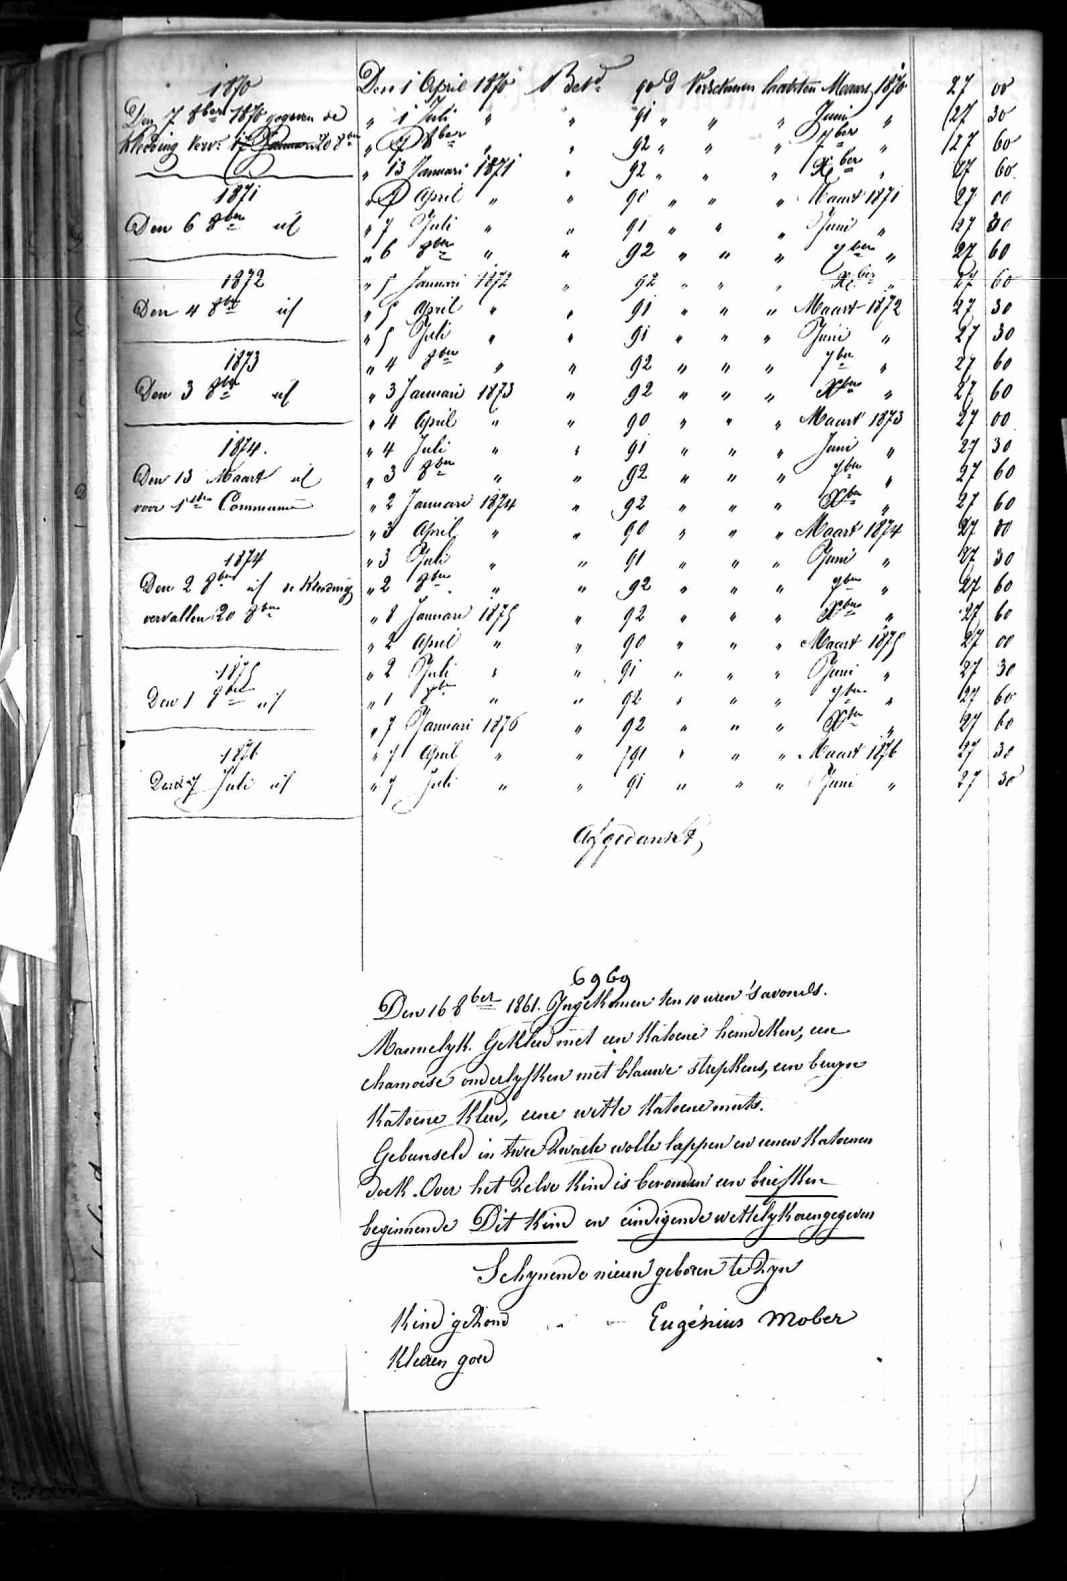 1870
Den 7 8ber 1870 gegeven de
Kleeding verv. 20 8ber
1871
Den 6 8ber id
1872
Den 4 8ber id
1873
Den 3 8ber id
1874.
Den 13 Maart id
voor 1ste Communie
1874
Den 2 8ber id de Kleeding
vervallen 20 8ber
1875
Den 1 8ber id
1876
Den 7 Juli id
Den 1 April 1870 Betd 90 d Verschenen laatsten Maart 1870 27 00
" 1 Juli " " 91 " " " Juni " 27 30
" 7 8ber " " 92 " " " 7ber " 27 60
" 13 Januari 1871 " 92 " " " Xber " 27 60
" April " " 90 " " " Maart 1871 27 00
" 7 Juli " " 91 " " " Juni " 27 30
" 6 8ber " " 92 " " " 7ber " 27 60
" 5 Januari 1872 " 92 " " " Xber " 27 60
" 5 April " " 91 " " " Maart 1872 27 30
" 5 Juli " " 91 " " " Juni " 27 30
" 4 8ber " " 92 " " " 7ber " 27 60
" 3 Januari 1873 " 92 " " " Xber " 27 60
" 4 April " " 90 " " " Maart 1873 27 00
" 4 Juli " " 91 " " " Juni " 27 30
" 3 8ber " " 92 " " " 7ber " 27 60
" 2 Januari 1874 " 92 " " " Xber " 27 60
" 3 April " " 90 " " " Maart 1874 27 00
" 3 Juli " " 91 " " " Juni " 27 30
" 2 8ber " " 92 " " " 7ber " 27 60
" 8 Januari 1875 " 92 " " " Xber " 27 60
" 2 April " " 90 " " " Maart 1875 27 00
" 2 Juli " " 91 " " " Juni " 27 30
" 1 8ber " " 92 " " " 7ber " 27 60
" 7 Januari 1876 " 92 " " " Xber " 27 60
" 7 April " " 91 " " " Maart 1876 27 30
" 7 Juli " " 91 " " " Juni " 27 30
Afgedankt,
6969
Den 16 8ber 1861. Ingekomen ten 10 uren 's avonds.
Mannelyk. Gekleed met een Katoene hemdeken, een
chamoise onderlyfken met blauwe strepkens, een bruyn
Katoene Kleed, eene witte Katoene muts.
Gebunseld in twee Zwarte wolle lappen en eenen Katoenen
doek. Over het Zelve Kind is bevonden een briefken
beginnende Dit Kind en eindigende wettelyk aengegeven
Schynende nieuw geboren te Zyn
Kind gezond " " Eugénius Mober
Kleeren goed